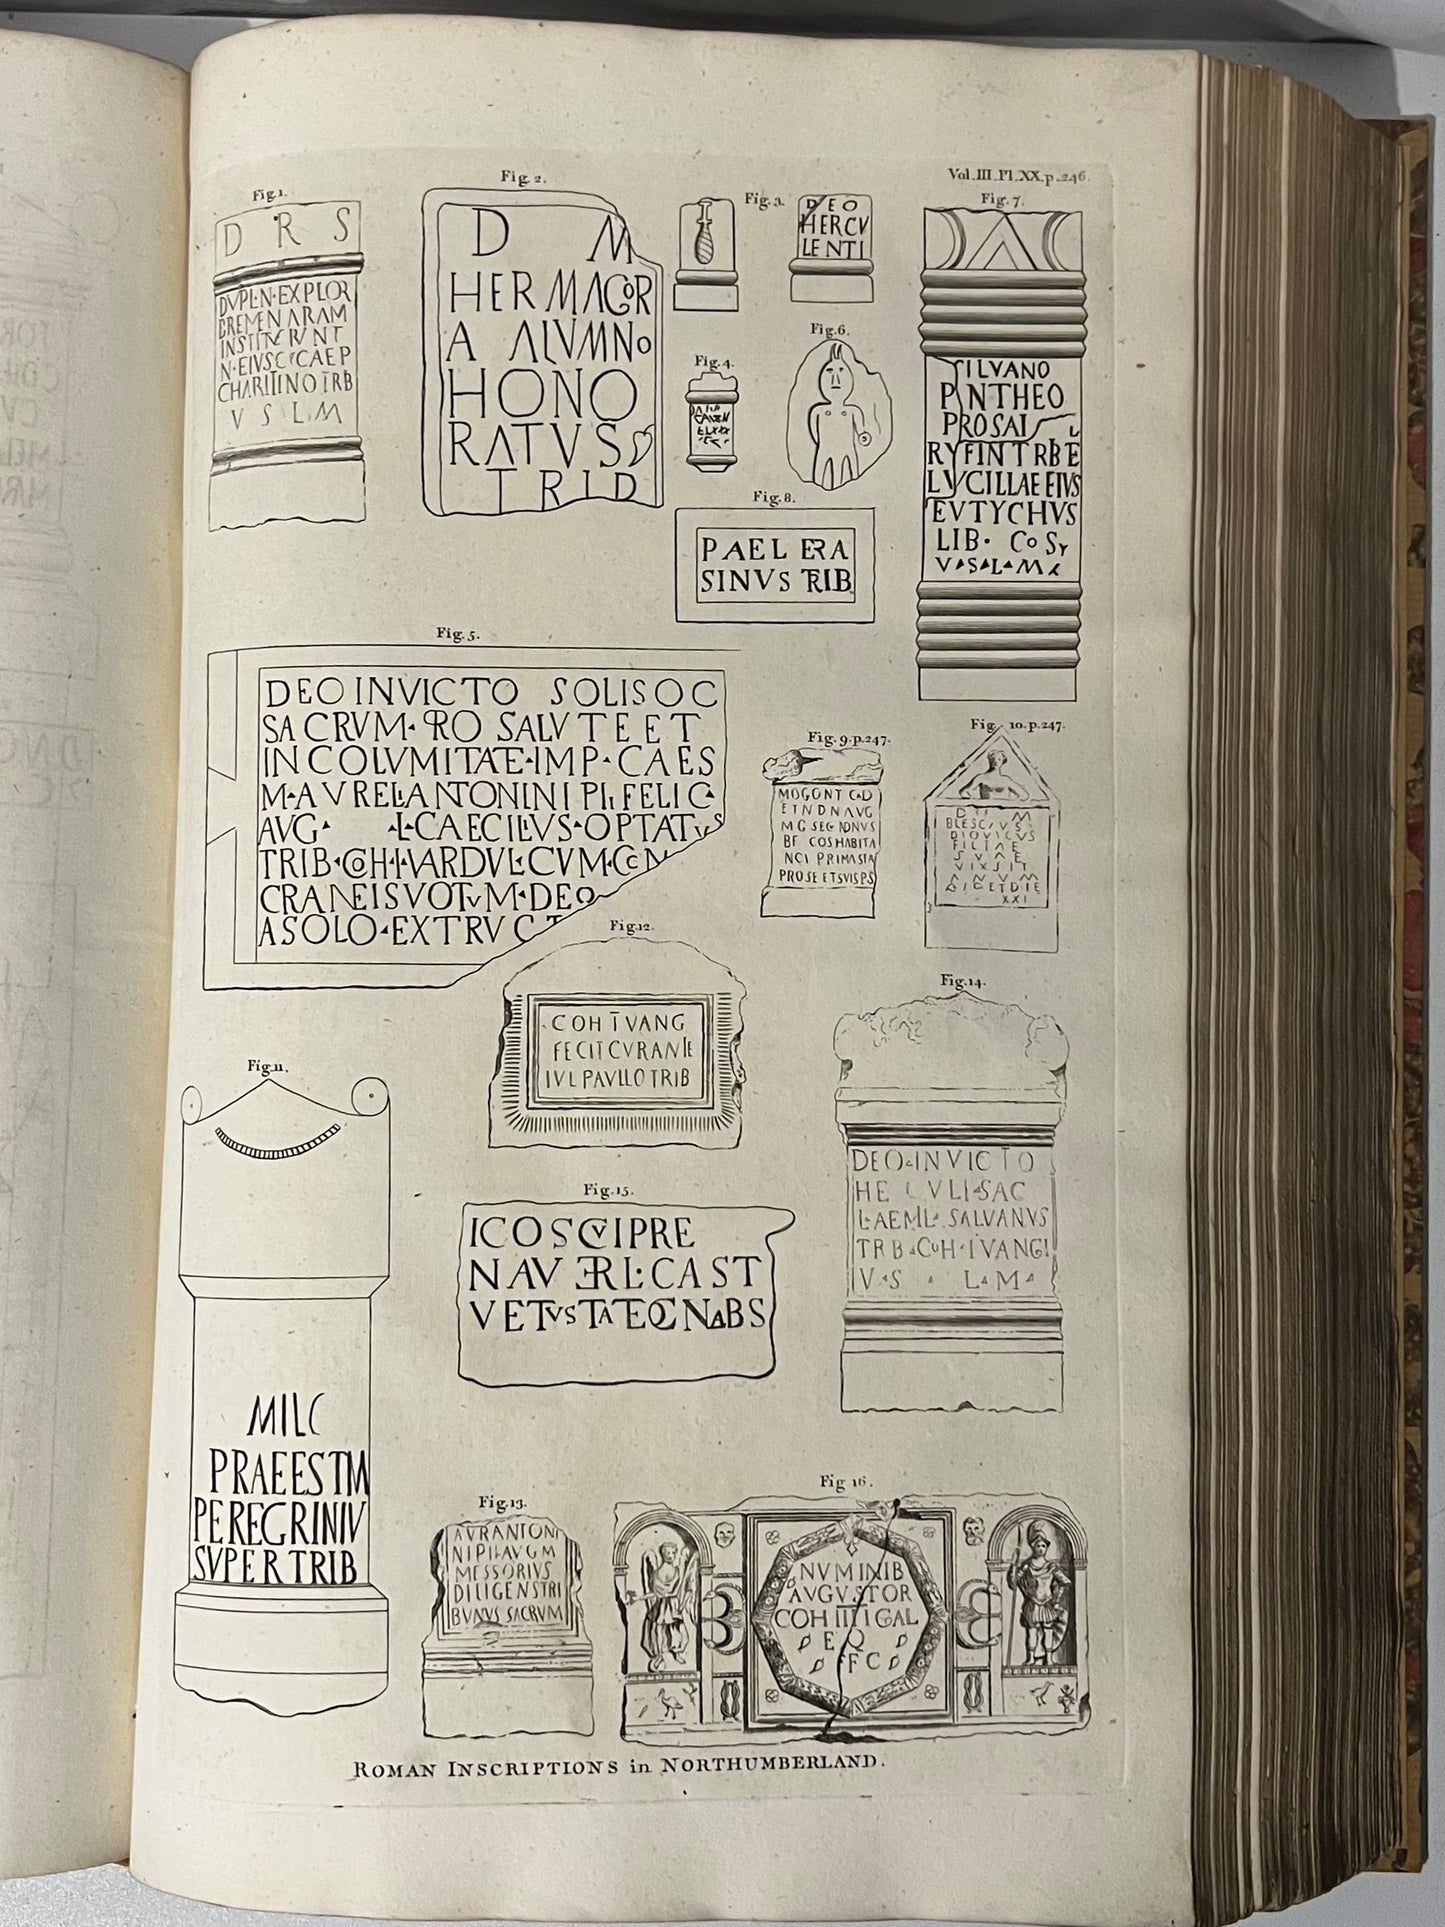 Vol. III. Pl. XX. p. 246.
Fig. 1.
D R S
DVPL·N·EXPLOR
BREMEN ARAM
INSTITVERVNT
N·EIVS C CAEP
CHARITINO TRB
V S L M
Fig. 2.
D M
HERMAGOR
A ALVMNO
HONO
RATVS
TRID
Fig. 3.
DEO
HERCV
LENTI
Fig. 4.
Fig. 6.
Fig. 7.
SILVANO
PANTHEO
PROSAL
RVFIN TRB E
LVCILLAE EIVS
EVTYCHVS
LIB· COS
V·S·L·M
Fig. 8.
P AEL ERA
SINVS TRIB
Fig. 5.
DEO INVICTO SOLI SOC
SACRVM·PRO SALVTE ET
INCOLVMITATE·IMP·CAES
M·AVRELI·ANTONINI PII FELIC·
AVG· ·L·CAECILIVS·OPTATVS
TRIB·COH·I·VARDVL·CVM·CON
CRANEIS VOTVM·DEO
A SOLO·EXTRVCT
Fig. 9. p. 247.
MOGONT CAD
ET N DN AVG
M G SECVNDINVS
BF COS HABITA
NCI PRIMA STA
PRO SE ET SVIS PS
Fig. 10. p. 247.
D M
BLESCIVS
DIOVICVS
FILIAE
SVAE
VIXSIT
ANVM
I ET DIE
XXI
Fig. 11.
MILC
PRAEEST M
PEREGRINIV
SVPER TRIB
Fig. 12.
COH I VANG
FECIT CVRANTE
IVL PAVLLO TRIB
Fig. 14.
DEO·INVICTO
HE CVLI·SAC
L·AEML·SALVANVS
TRB·COH·I VANGI
V·S · L·M·
Fig. 15.
ICOS CVI PRE
NAV ERL·CAST
VETVSTATE CNABS
Fig. 13.
AVR ANTONI
NI PII AVG M
MESSORIVS
DILIGENS TRI
BVNVS SACRVM
Fig. 16.
NVMINIB
AVGVSTOR
COH IIII GAL
EQ
FC
ROMAN INSCRIPTIONS in NORTHUMBERLAND.